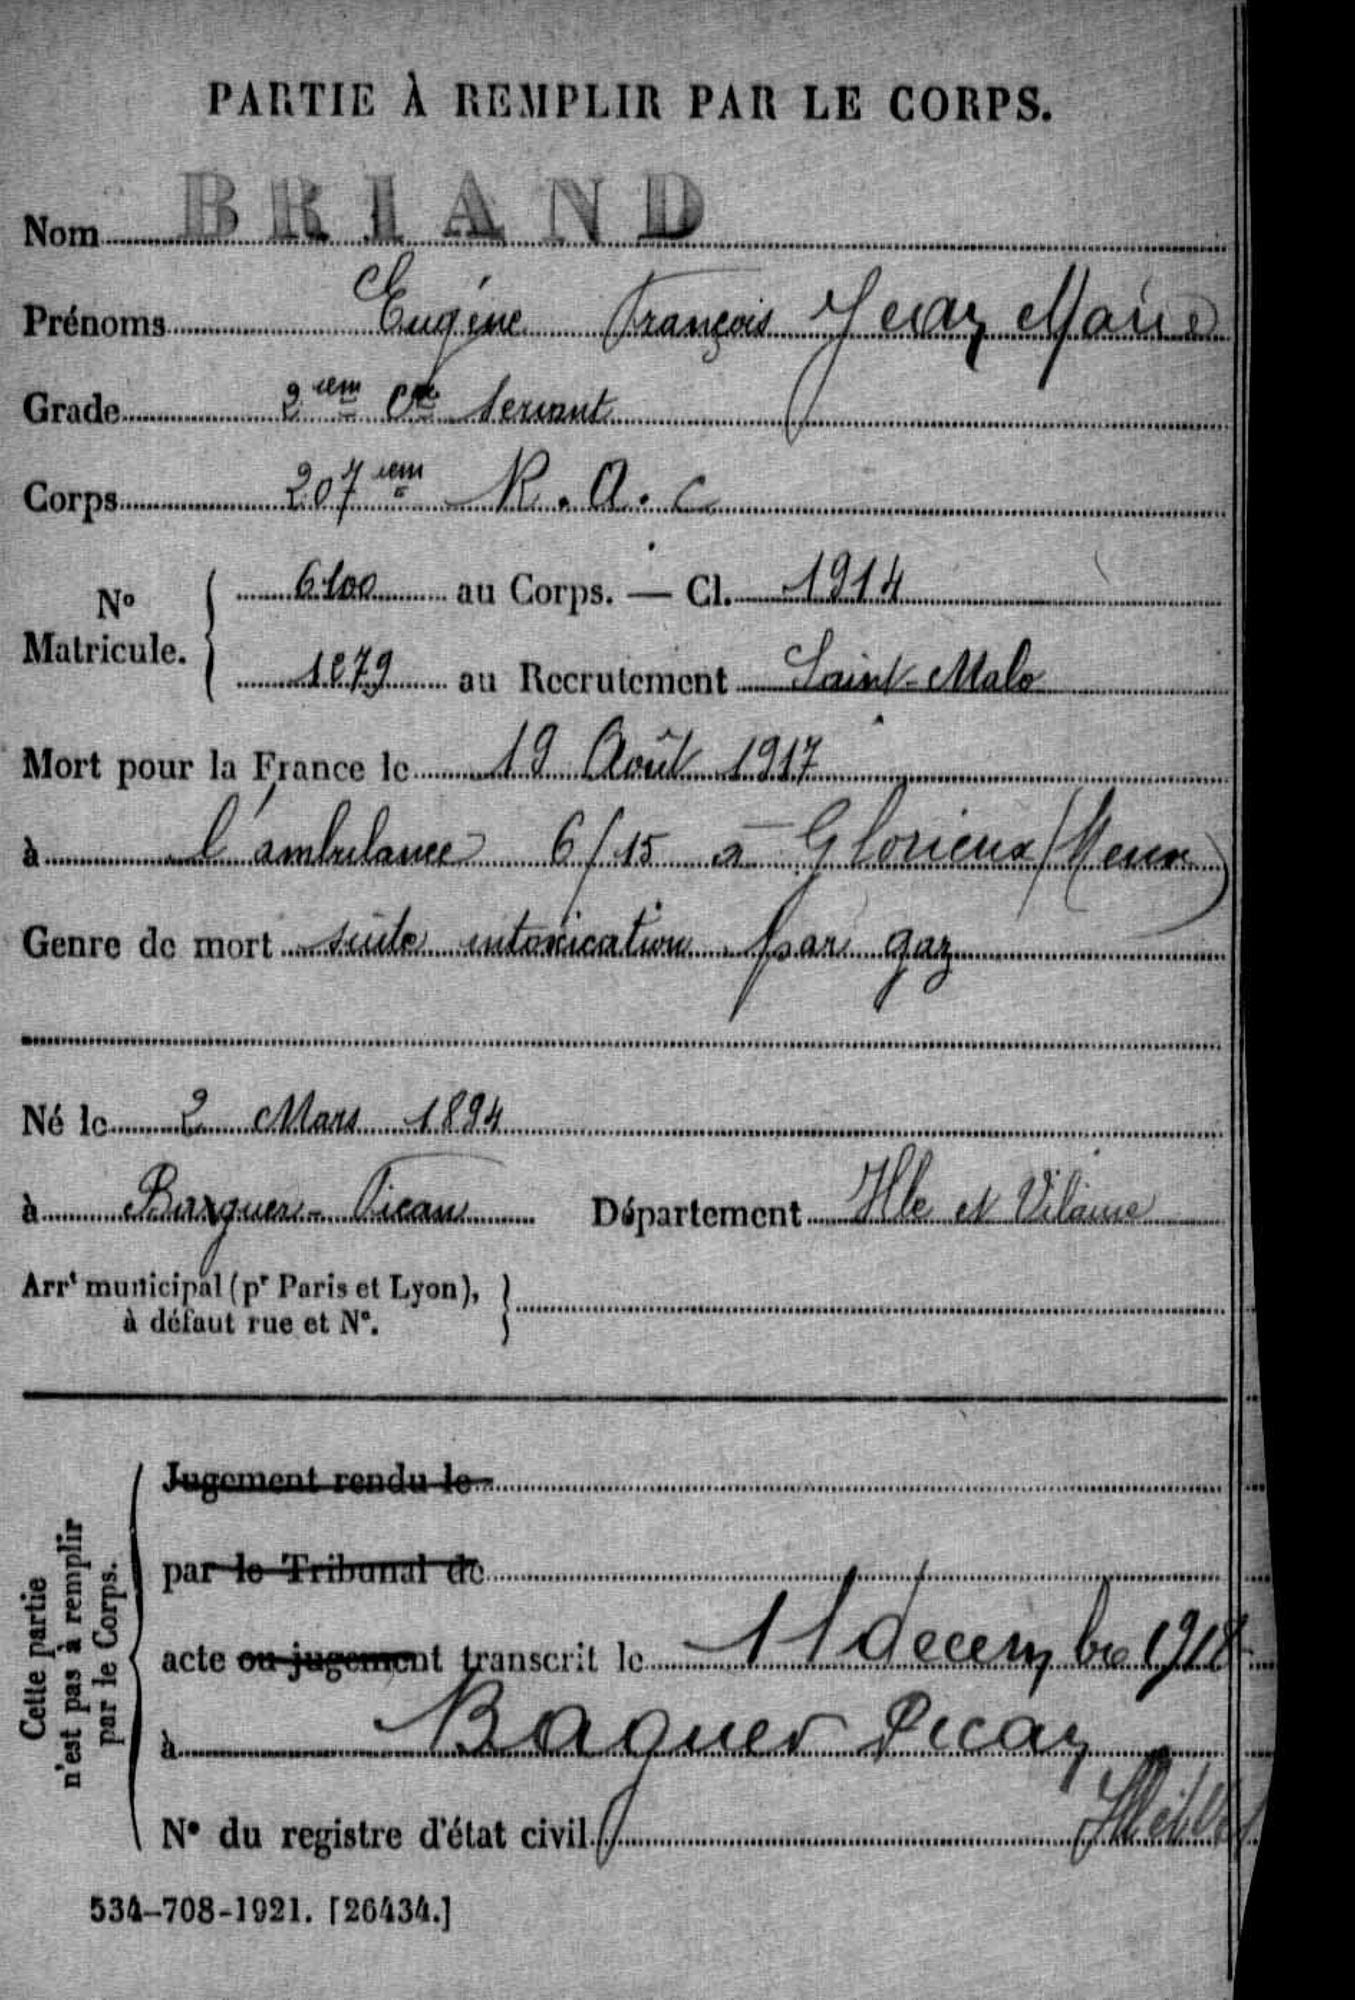 PARTIE À REMPLIR PAR LE CORPS.
Nom BRIAND
Prénoms Eugène François Jean Marie
Grade 2 iem Cte Servant
Corps 207 iem R. A. C
N° Matricule. 6100 au Corps. — Cl. 1914
1279 au Recrutement Saint-Malo
Mort pour la France le 19 Août 1917
à l'ambulance 6/15 à Glorieux (Meuse)
Genre de mort suite intoxication par gaz
Né le 2 Mars 1894
à Barguer-Pican Département Ille et Vilaine
Arrt municipal (pr Paris et Lyon),
à défaut rue et N°.
Cette partie
n'est pas à remplir
par le Corps.
Jugement rendu le
par le Tribunal de
acte ou jugement transcrit le 11 décembre 1918
à Baguer Pican
N° du registre d'état civil
534-708-1921. [26434.]